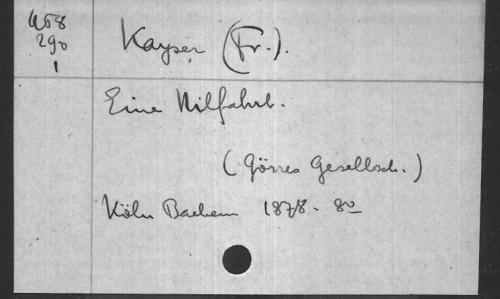 458
290
1
Kayser (Fr.).
Eine Nilfahrt.
(Görres Gesellsch.)
Köln Bachem 1878-80